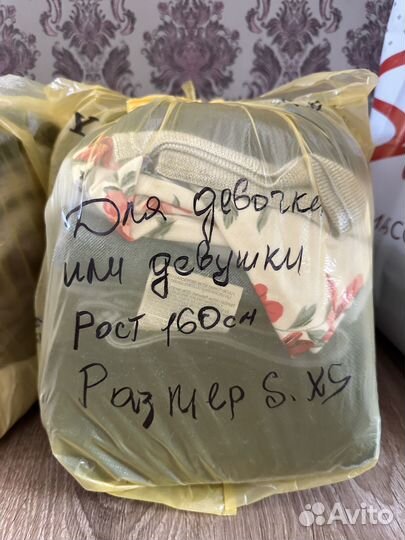 Для девочки
или девушки
Рост 160см
Размер S. XS
Avito